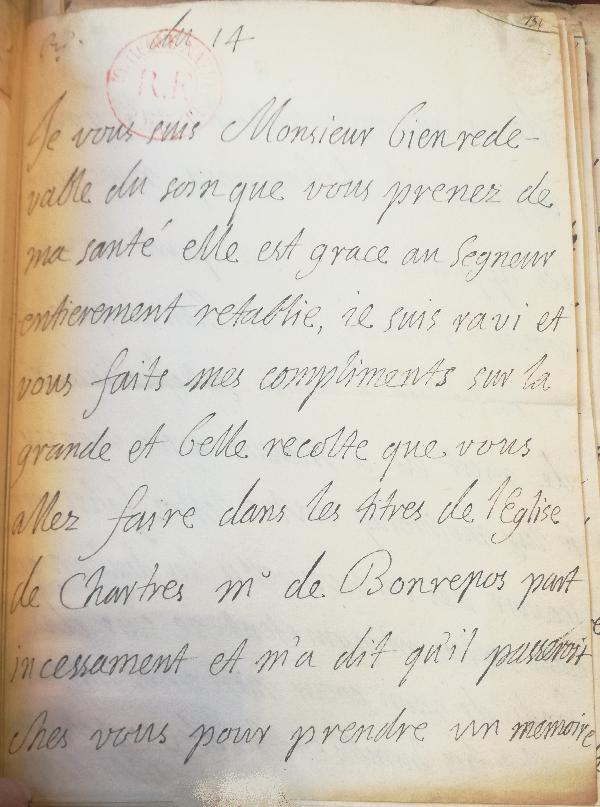 151
du 14
R.F
Je vous suis Monsieur bien rede-
vable du soin que vous prenez de
ma santé elle est grace au segneur
entierement retablie, ie suis ravi et
vous faits mes compliments sur la
grande et belle recolte que vous
allez faire dans les titres de l'Eglise
de Chartres mr de Bonrepos part
incessament et m'a dit qu'il passeroit
ches vous pour prendre un memoire